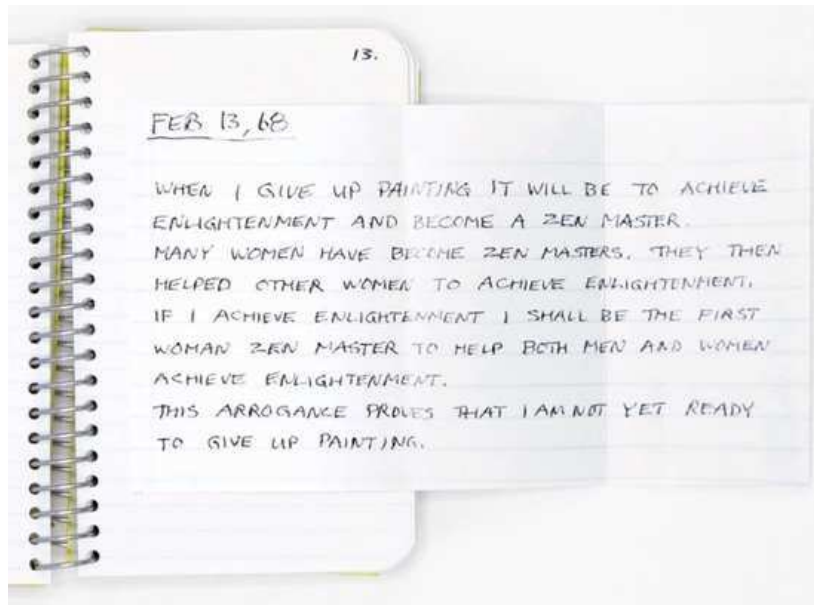 13.
FEB 13, 68
WHEN I GIVE UP PAINTING IT WILL BE TO ACHIEVE
ENLIGHTENMENT AND BECOME A ZEN MASTER.
MANY WOMEN HAVE BECOME ZEN MASTERS. THEY THEN
HELPED OTHER WOMEN TO ACHIEVE ENLIGHTENMENT.
IF I ACHIEVE ENLIGHTENMENT I SHALL BE THE FIRST
WOMAN ZEN MASTER TO HELP BOTH MEN AND WOMEN
ACHIEVE ENLIGHTENMENT.
THIS ARROGANCE PROVES THAT I AM NOT YET READY
TO GIVE UP PAINTING.